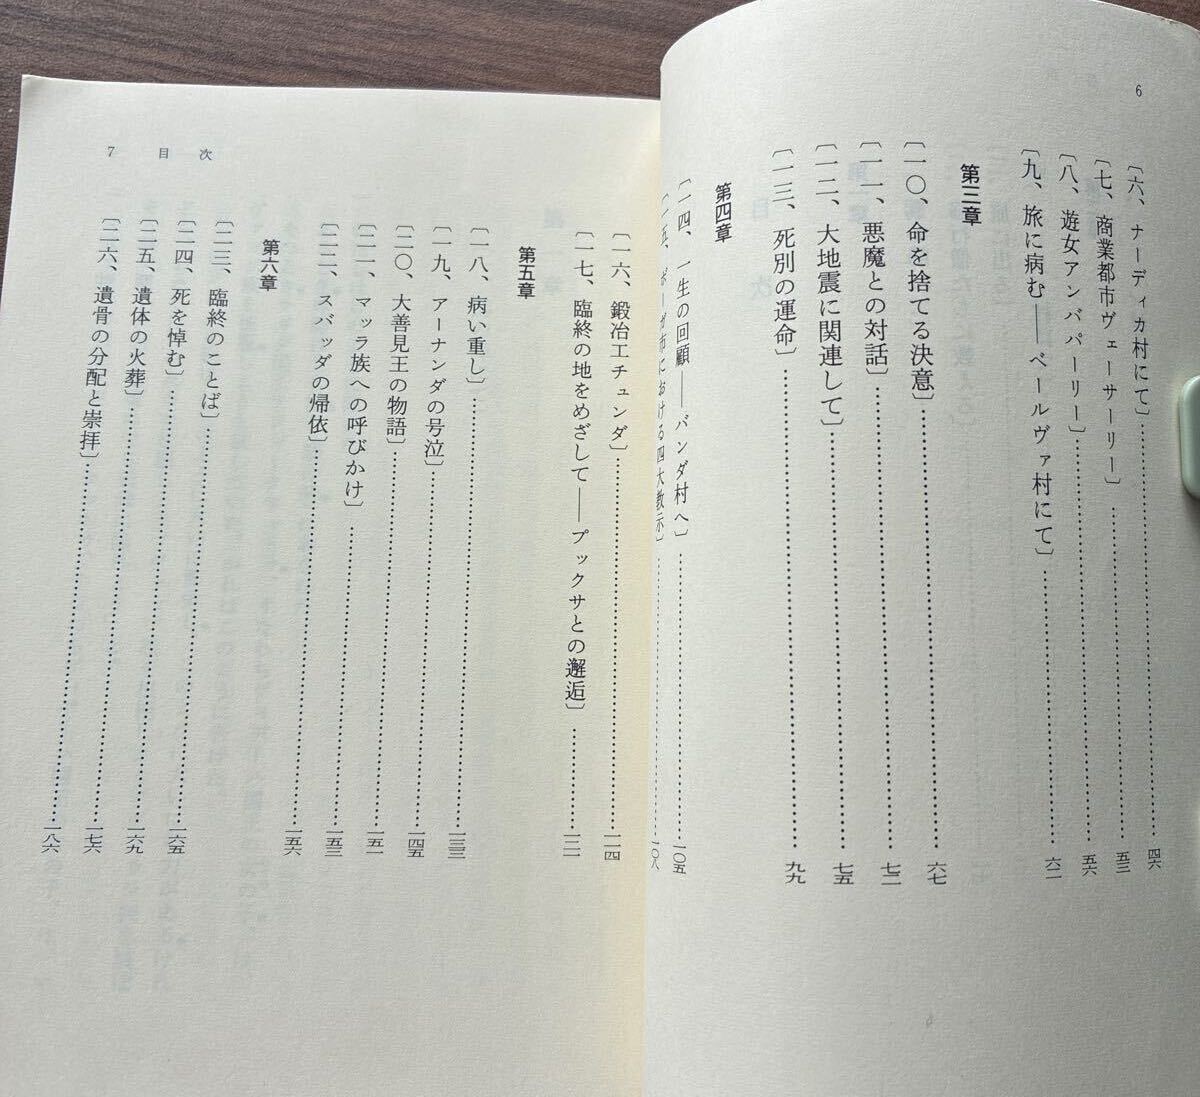 6
〔六、ナーディカ村にて〕……四六
〔七、商業都市ヴェーサーリー〕……五三
〔八、遊女アンバパーリー〕……五六
〔九、旅に病む――ベールヴァ村にて〕……六二
第三章
〔一〇、命を捨てる決意〕……六七
〔一一、悪魔との対話〕……七二
〔一二、大地震に関連して〕……七五
〔一三、死別の運命〕……九九
第四章
〔一四、一生の回顧――バンダ村へ〕……一〇五
〔一五、ボーガ市における四大教示〕……一〇八
7 目次
〔一六、鍛冶工チュンダ〕……一一四
〔一七、臨終の地をめざして――プックサとの邂逅〕……一二一
第五章
〔一八、病い重し〕……一三三
〔一九、アーナンダの号泣〕……一四五
〔二〇、大善見王の物語〕……一五一
〔二一、マッラ族への呼びかけ〕……一五三
〔二二、スバッダの帰依〕……一五六
第六章
〔二三、臨終のことば〕……一六五
〔二四、死を悼む〕……一六九
〔二五、遺体の火葬〕……一七六
〔二六、遺骨の分配と崇拝〕……一八六